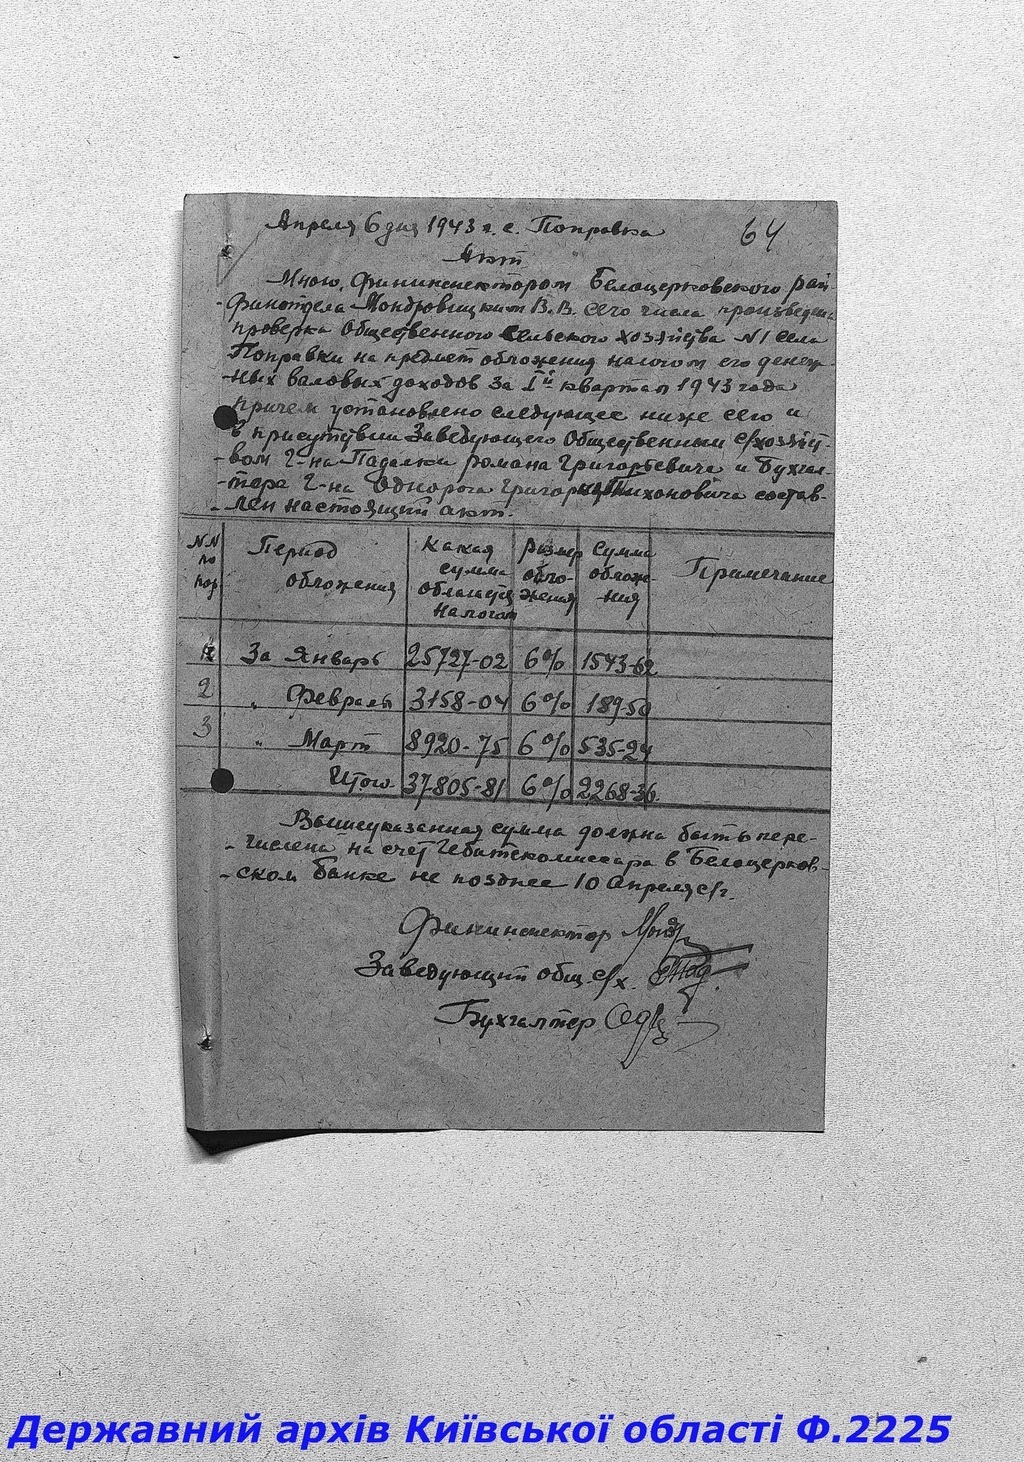 Апреля 6 дня 1943 г. с. Поправка
64
Акт
Мною, Фининспектором Белоцерковского рай
финотдела Мондровицким В.В. сего числа произведена
проверка Общественного Сельского хозяйства N1 села
Поправки на предмет обложения налогом его денеж-
-ных валовых доходов за Iй квартал 1943 года
причем установлено следующее ниже сего и
в присутствии Заведующего Общественным с/хозяйст-
-вом г-на Падалки Романа Григорьевича и Бухгал-
-тера г-на Однорога Григория Тихоновича состав-
-лен настоящий акт.
N.N по пор. Период обложения Какая сумма облагается налогом Размер обло-жения Сумма облож-ния Примечание
1 За Январь 25727-02 6% 1543-62
2 " Февраль 3158-04 6% 189-50
3 " Март 8920-75 6% 535-24
Итого 37805-81 6% 2268-36
Вышеуказанная сумма должна быть пере-
-числена на счет Гебитскомиссара в Белоцерков-
-ском банке не позднее 10 Апреля с/г.
Фининспектор
Заведующий общ. с/х.
Бухгалтер
Державний архів Київської області Ф.2225